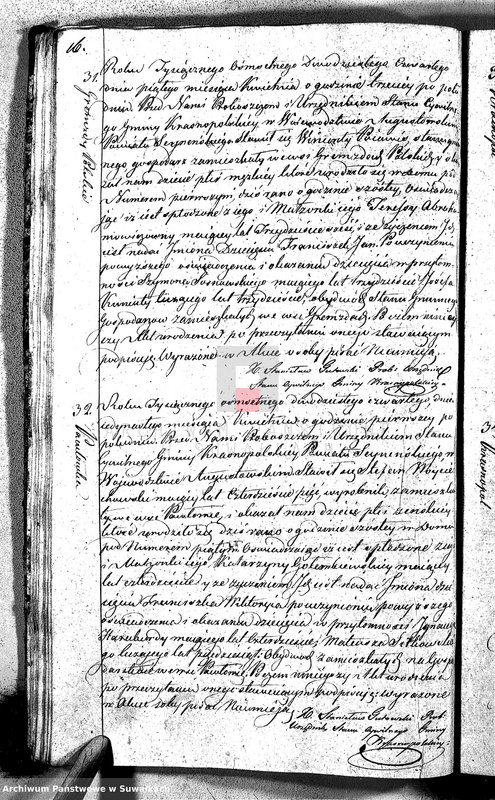 16.
31.
Gremzdy Polskie
Roku Tysiącznego Ośmsetnego Dwudziestego Czwartego
dnia piątego miesiąca Kwietnia o godzinie trzeciej po połu
dniu. Przed Nami Proboszczem i Urzędnikiem Stanu Cywilne
go Gminy Krasnopolskiej w Województwie Augustowskim
Powiatu Seyneńskiego Stawił się Wincenty
nego gospodarz zamieszkały we wsi Gremzdach Polskich i oka
zał nam dziecię płci męzkiey które urodziło się w domu pod
Numerem pierwszym dziś rano o godzinie szóstey, oświadcza
jąc iż jest spłodzone z niego i Małżonki jego Teresy Abra
mowiczowny maiącey lat Trzydzieście sześć, i że życzeniem Je
go jest nadać Imiona Dziecięciu Franciszek Jan. Po uczynieniu
powyższego oświadczenia i okazaniu dziecięcia w przytom
ności Szymona Sosnowskiego maiącego lat trzydzieści i Józefa
liczącego lat trzydzieści, obydwóch Stanu Gminnego
Gospodarzów zamieszkałych we wsi Gremzdach. Poczem niniey
szy Akt urodzenia po przeczytaniu onego stawaiącym
podpisaliśmy. Wyrażone w Akcie osoby pisać Nieumieją.
X. Stanisław Gutowski Prob: Urzędnik
Stanu Cywilnego Gminy Krasnopolskiey
32.
Pawłówka
Roku Tysiącznego ośmsetnego dwudziestego czwartego, dnia
jedynastego miesiąca Kwietnia o godzinie pierwszey po
południu. Przed Nami Proboszczem i Urzędnikiem Stanu
Cywilnego Gminy Krasnopolskiey Powiatu Seyneńskiego w
Województwie Augustowskim Stawił się Stefan Woycie
chowski maiący lat Czterdzieście pięć, wyrobnik, zamieszka
ły we wsi Pawłówce, i okazał nam dziecię płci żeńskiey
które urodziło się dziś rano o godzinie szóstey w Domu
pod Numerem piątym. Oświadczaiąc iż jest spłodzone z niego
i Małżonki jego Katarzyny Gołembiewskiey maiącey
lat czterdzieście, i że życzeniem Jego jest nadać Imiona dzie
cięciu Franciszka Wiktorya. Po uczynieniu powyższego
oświadczenia i okazaniu dziecięcia w przytomności Ignacego
maiącego lat Czterdzieście, i Mateusza
go liczącego lat pięćdziesiąt. Obydwóch zamieszkałych na Gospo
darstwie we wsi Pawłówce. Poczem niniejszy Akt urodzenia
po przeczytaniu onego stawaiącym podpisaliśmy. wyrażone
w Akcie osoby pisać Nieumieją.
X. Stanisław Gutowski Prob.
Urzędnik Stanu Cywilnego Gminy
Krasnopolskiey.
Archiwum Państwowe w Suwałkach